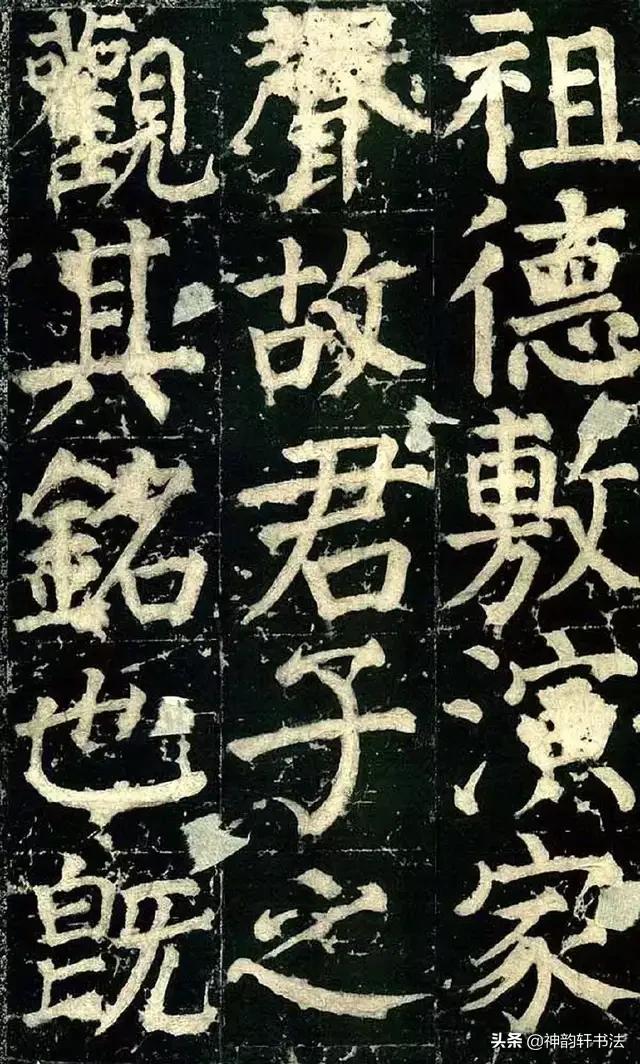 祖德敷演家
聲故君子之
觀其銘也既
头条@神韵轩书法